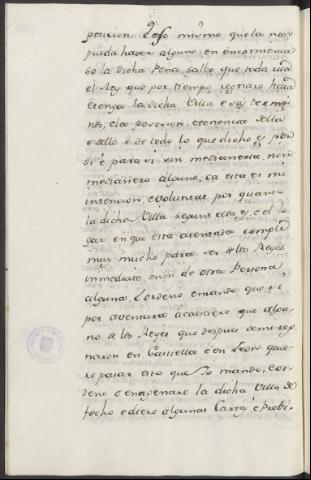 posicion. Eso mismo que la non
pueda haver alguno en encomienda
so la dicha Pena, salbo que toda via
el Rey que por tiempo regnare haia
e tenga la dicha Villa e sus termi-
nos, e la posesion, e tenencia della
e dello e de todo lo que dicho es por
si e para si sin medianeria, nin
medianero alguno, ca esta es mi
intencion, e voluntat por quanto
la dicha Villa segunt esta es, e el lo-
gar en que esta asentada cumple
muy mucho para ser de los Reyes
inmediate, e non de otra Persona
alguna. E ordeno e mando, que si
por aventura acaesciere que algu-
no de los Reyes que despues de mi reg-
naren en Castiella e en Leon quie-
re pasar esto que Yo mando, e or-
deno e enagenare la dicha Villa de
fecho e diere algunas Cartas e Prebi-